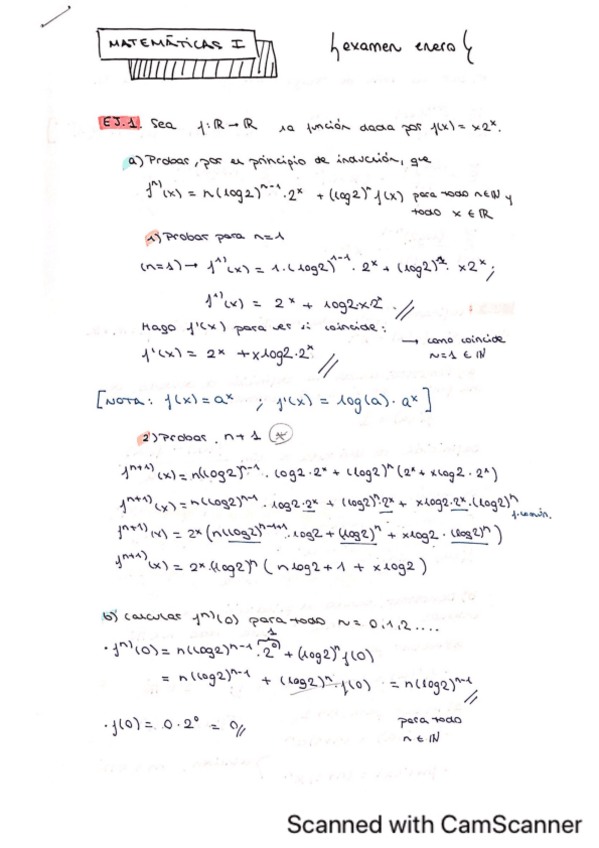 MATEMÁTICAS I
examen enero
EJ.1. Sea f: ℝ → ℝ la función dada por f(x) = x2ˣ.
a) Probar, por el principio de inducción, que
fⁿ⁾(x) = n(log2)ⁿ⁻¹·2ˣ + (log2)ⁿ f(x) para todo n∈ℕ y
todo x ∈ ℝ
1) Probar para n=1
(n=1) → f¹⁾(x) = 1·(log2)¹⁻¹·2ˣ + (log2)¹·x2ˣ;
f¹⁾(x) = 2ˣ + log2·x2ˣ.//
Hago f'(x) para ver si coincide:
→ como coincide
f'(x) = 2ˣ + xlog2·2ˣ //
n=1 ∈ ℕ
[NOTA: f(x) = aˣ ; f'(x) = log(a)·aˣ]
2) Probar n+1 *
fⁿ⁺¹⁾(x) = n(log2)ⁿ⁻¹·log2·2ˣ + (log2)ⁿ(2ˣ + xlog2·2ˣ)
fⁿ⁺¹⁾(x) = n(log2)ⁿ⁻¹·log2·2ˣ + (log2)ⁿ·2ˣ + xlog2·2ˣ·(log2)ⁿ
f.común.
fⁿ⁺¹⁾(x) = 2ˣ(n(log2)ⁿ⁻¹⁺¹·log2 + (log2)ⁿ + xlog2·(log2)ⁿ)
fⁿ⁺¹⁾(x) = 2ˣ·(log2)ⁿ(nlog2 + 1 + xlog2)
b) calcular fⁿ⁾(0) para todo n = 0,1,2....
1
·fⁿ⁾(0) = n(log2)ⁿ⁻¹·2⁰⁾ + (log2)ⁿ f(0)
= n(log2)ⁿ⁻¹ + (log2)ⁿ·f(0) = n(log2)ⁿ⁻¹ //
·f(0) = 0·2⁰ = 0//
para todo
n ∈ ℕ
Scanned with CamScanner